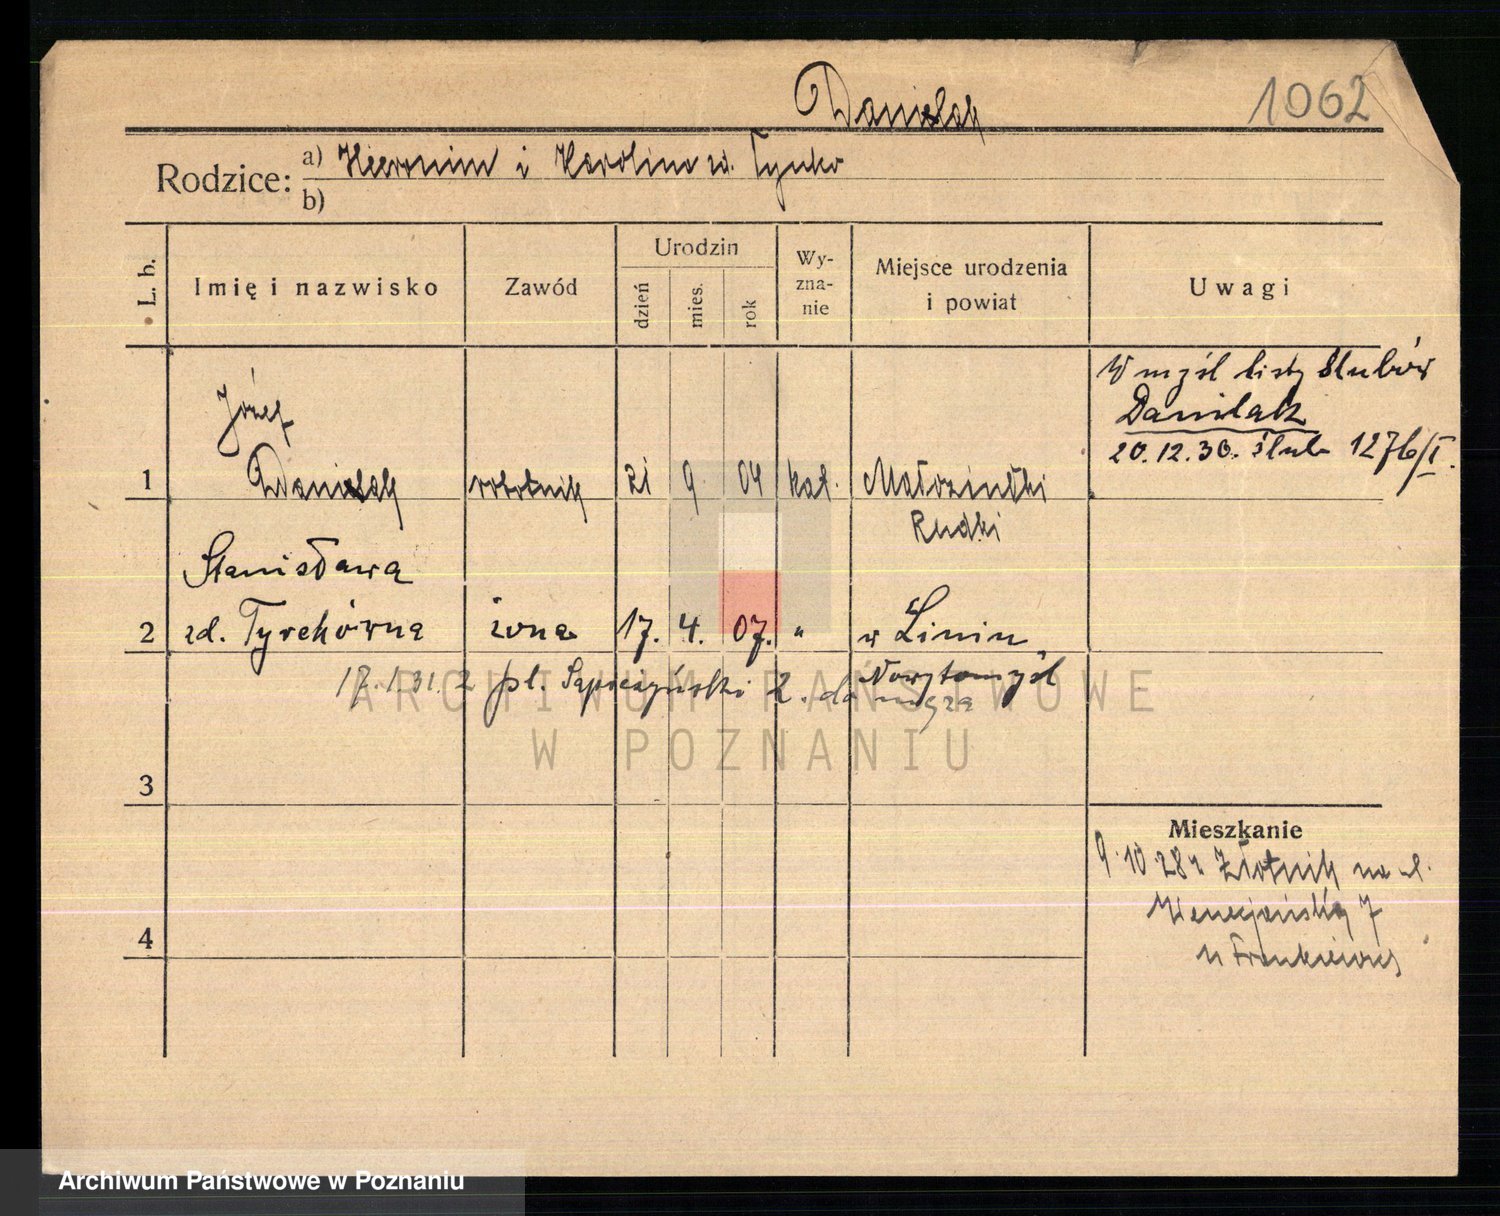 Danielak
1062
Rodzice: a) Hieronim i Karolina zd. Tynka
b)
L. b.
Imię i nazwisko
Zawód
Urodzin
dzień
mies.
rok
Wy-
zna-
nie
Miejsce urodzenia
i powiat
Uwagi
W myśl listy ślubów
Danielak
20.12.30. ślub 1276/I.
Józef
1 Danielak robotnik 21 9 04 kat.
Rudki
Stanisława
2 zd. żona 17. 4. 07. " w Liniu
Nowytomyśl
17.1.31. 2 pl. Sapieżyński 2. do męża
ARCHIWUM PAŃSTWOWE
W POZNANIU
3
Mieszkanie
9.10.28 z Złotnik na ul.
Wenecjańską 7
u Frankiewicz
4
Archiwum Państwowe w Poznaniu